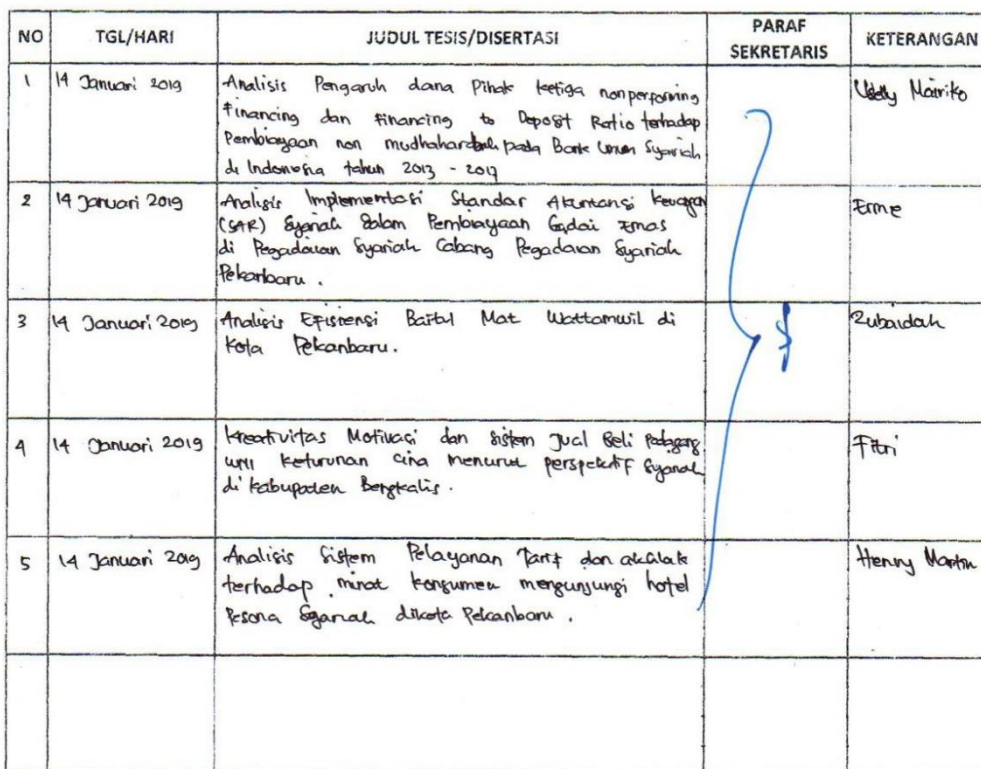 NO TGL/HARI JUDUL TESIS/DISERTASI PARAF SEKRETARIS KETERANGAN
1 14 Januari 2019 Analisis Pengaruh dana Pihak ketiga nonperforming Mairiko
Financing dan Financing to Deposit Ratio terhadap
Pembiayaan non pada Bank Umum Syariah
di Indonesia tahun 2013 - 2017
2 14 Januari 2019 Analisis Implementasi Standar Akuntansi Erme
Syariah dalam Pembiayaan Gadai Emas
di Pegadaian Syariah Cabang Pegadaian Syariah
Pekanbaru.
3 14 Januari 2019 Analisis Efisiensi Baitul Mat Wattamwil di Zubaidah
Kota Pekanbaru.
4 14 Januari 2019 Kreativitas Motivasi dan sistem Jual Beli Pedagang Fitri
keturunan cina menurut perspektif Syariah
di kabupaten Bengkalis.
5 14 Januari 2019 Analisis Sistem Pelayanan Tarif dan Henny Martin
terhadap minat konsumen mengunjungi hotel
Pesona Syariah dikota Pekanbaru.